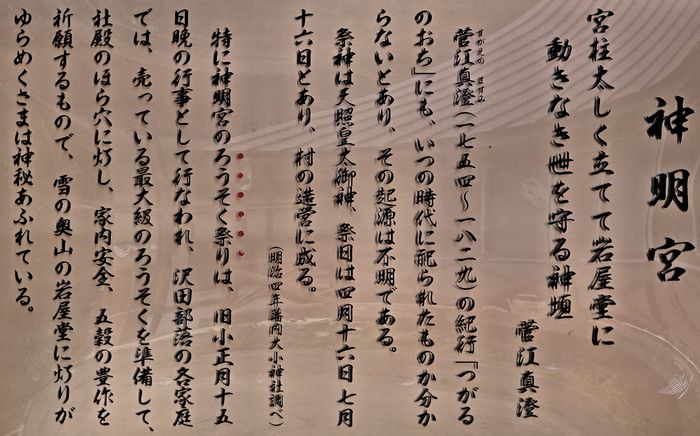 神明宮
宮柱太しく立てて岩屋堂に
動きなき世を守る神垣
菅江真澄
菅江真澄(一七五四〜一八二九)の紀行『つがる
すがえの ますみ
のおち』にも、いつの時代に祀られたものか分か
らないとあり、その起源は不明である。
祭神は天照皇太御神、祭日は四月十六日七月
十六日とあり、村の造営に成る。
(明治四年藩内大小神社調べ)
特に神明宮のろうそく祭りは、旧小正月十五
日晩の行事として行なわれ、沢田部落の各家庭
では、売っている最大級のろうそくを準備して、
社殿のほら穴に灯し、家内安全、五穀の豊作を
祈願するもので、雪の奥山の岩屋堂に灯りが
ゆらめくさまは神秘あふれている。